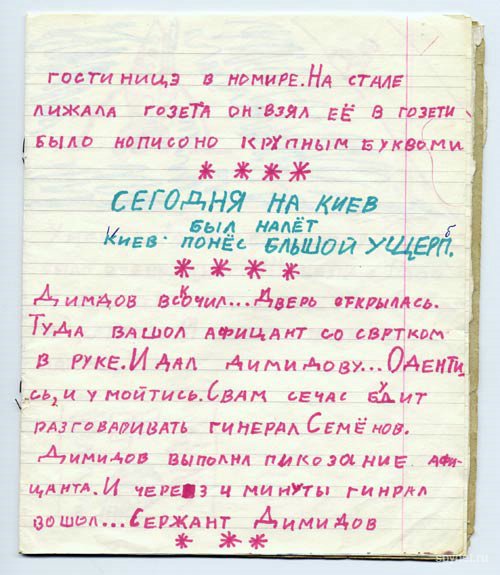 гостиницэ в номире. На стале
лижала гозета он взял её в гозети
было нописоно крупным буквоми
* * * *
СЕГОДНЯ НА КИЕВ
БЫЛ НАЛЁТ
КИЕВ ПОНЁС БЛЬШОЙ УЩЕРП.
* * * *
Димдов вскочил... Дверь открылась.
Туда вашол афицант со свртком
в руке. И дал димидову... Оденти
сь, и умойтись. Свам сечас будит
разговаривать гинерал Семёнов.
Димидов выполнл пикозание афи-
цанта. И через 4 минуты гинрал
вошол... Сержант Димидов
* * *